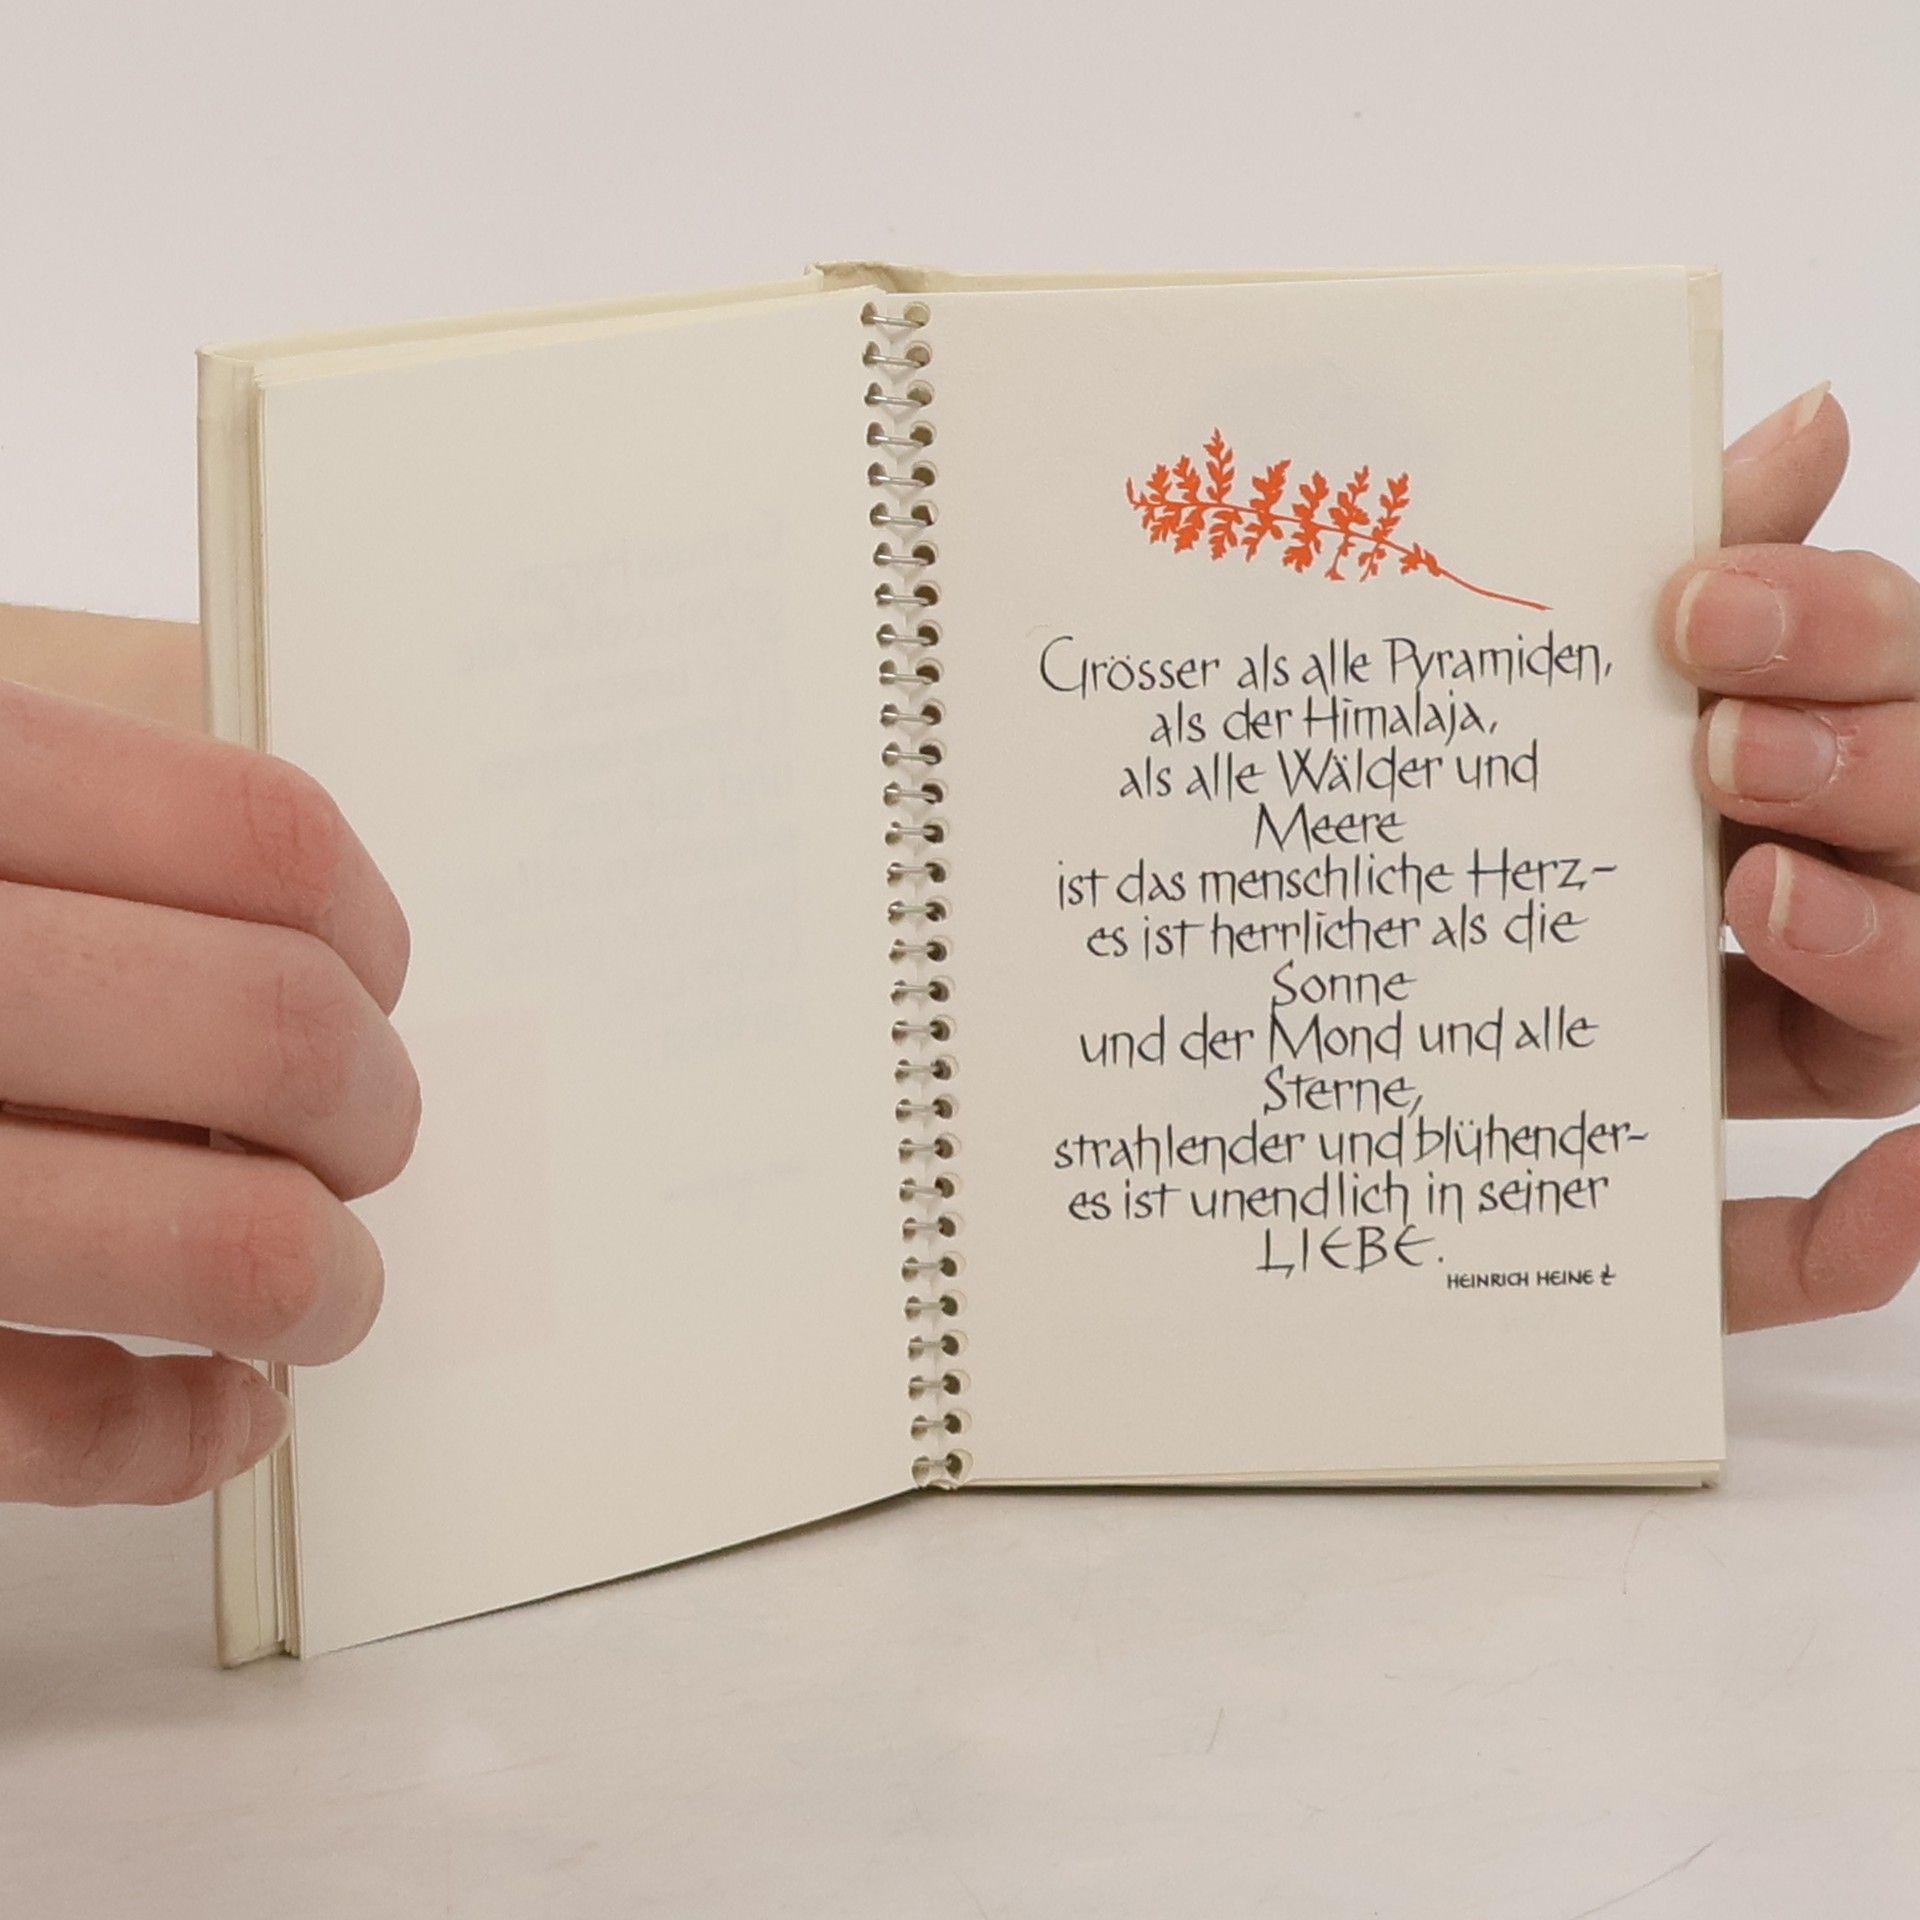 Grösser als alle Pyramiden,
als der Himalaja,
als alle Wälder und
Meere
ist das menschliche Herz-
es ist herrlicher als die
Sonne
und der Mond und alle
Sterne,
strahlender und blühender-
es ist unendlich in seiner
LIEBE.
HEINRICH HEINE